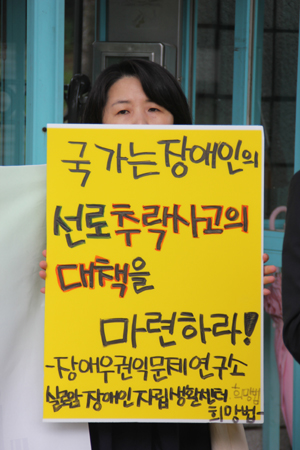 국가는 장애인의
선로 추락사고의
대책을
마련하라!
-장애우권익문제연구소
실로암 장애인자립생활센터 희망법
희망법-